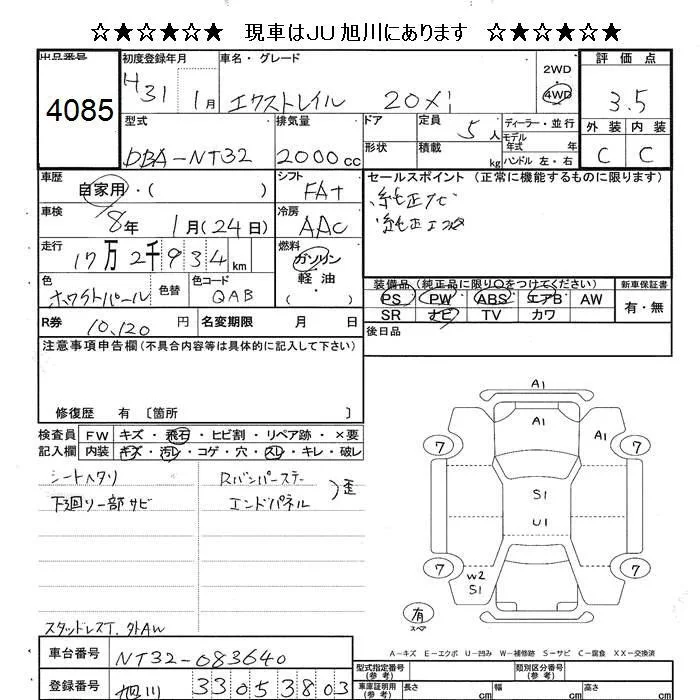 ☆★☆★☆★ 現車はJU旭川にあります ☆★☆★☆★
出品番号 4085
初度登録年月 H31 1月
車名・グレード エクストレイル 20xi
2WD 4WD
評価点 3.5
外装 内装
C C
型式 DBA-NT32
排気量 2000cc
ドア 定員 5人
形状 積載 kg
ディーラー・並行
モデル年式 年
ハンドル 左・右
車歴 自家用・( )
シフト FAT
セールスポイント (正常に機能するものに限ります)
純正ナビ
純正エアロ
車検 8年 1月(24日)
冷房 AAC
走行 17万2千934km
燃料 ガソリン・軽油・( )
色 ホワイトパール
色替
色コード QAB
装備品(純正品に限り○をつけてください) 新車保証書
PS PW ABS エアB AW 有・無
SR ナビ TV カワ
R券 10,120円 名変期限 月 日
後日品
注意事項申告欄(不具合内容等は具体的に記入して下さい)
修復歴 有 〔箇所 〕
検査員 FW キズ・飛石・ヒビ割・リペア跡・×要
記入欄 内装 キズ・汚レ・コゲ・穴・スレ・キレ・破レ
シートヘタリ Rバンパーステー
下廻り一部サビ エンドパネル )歪
スタッドレスT. 外AW
A1
A1 A1
7 7
S1
U1
7 7
W2
S1
有
スペア
A-キズ E-エクボ U-凹み W-補修跡 S-サビ C-腐食 XX-交換済
車台番号 NT32-083640
登録番号 旭川 330 53803
型式指定番号(参考) 類別区分番号(参考)
車庫証明用(参考) 長さ cm 幅 cm 高さ cm